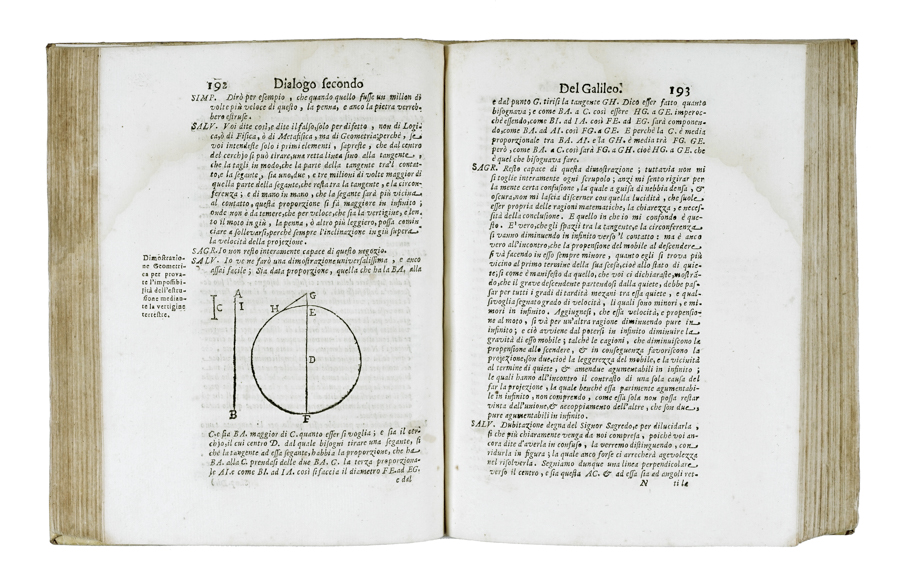 192 Dialogo secondo
SIMP. Dirò per esempio, che quando quello fusse un milion di
volte più veloce di questo, la penna, e anco la pietra verreb-
bero estruse.
SALV. Voi dite così, e dite il falso, solo per difetto, non di Logi-
ca, ò di Fisica, ò di Metafisica, ma di Geometria; perchè, se
voi intendeste solo i primi elementi, sapreste, che dal centro
del cerchio si può tirare una retta linea sino alla tangente,
che la tagli in modo, che la parte della tangente tra'l contat-
to, e la segante, sia uno, due, e tre milioni di volte maggior di
quella parte della segante, che resta tra la tangente, e la circon-
ferenza; e di mano in mano, che la segante sarà più vicina
al contatto, questa proporzione si fà maggiore in infinito;
onde non è da temere, che per veloce, che sia la vertigine, e len-
to il moto in giù, la penna, ò altro più leggiero, possa comin-
ciare a sollevarsi, perchè sempre l'inclinazione in giù supera
la velocità della projezione.
SAGR. Io non resto interamente capace di questo negozio.
SALV. Io ve ne farò una dimostrazione universalissima, e anco
assai facile; Sia data proporzione, quella che ha la BA, alla
Dimostrazio-
ne Geometri-
ca per prova-
re l'impossibi-
lità dell'estru-
sione median-
te la vertigine
terrestre.
A
C I
B
G
H E
D
F
C. e sia BA. maggior di C. quanto esser si voglia; e sia il cer-
chio, il cui centro D. dal quale bisogni tirare una segante, sì
che la tangente ad essa segante, habbia la proporzione, che ha
BA. alla C. prendasi delle due BA. C. la terza proporziona-
le AI. e come BI. ad IA. così si faccia il diametro FE. ad EG.
e dal
Del Galileo. 193
e dal punto G. tirisi la tangente GH. Dico esser fatto quanto
bisognava; e come BA. a C. così essere HG. a GE. imperoc-
chè essendo, come BI. ad IA. così FE. ad EG. sarà componen-
do, come BA. ad AI. così FG. a GE. E perchè la C. è media
proporzionale tra BA. AI. e la GH. è media trà FG. GE.
però, come BA. a C. così sarà FG. a GH. cioè HG. a GE. che
è quel che bisognava fare.
SAGR. Resto capace di questa dimostrazione; tuttavia non mi
si toglie interamente ogni scrupolo; anzi mi sento rigirar per
la mente certa confusione, la quale a guisa di nebbia densa, &
oscura, non mi lascia discerner con quella lucidità, che suole
esser propria delle ragioni matematiche, la chiarezza, e neces-
sità della conclusione. E quello in che io mi confondo è que-
sto. E' vero, che gli spazii tra la tangente, e la circonferenza
si vanno diminuendo in infinito verso'l contatto: ma è anco
vero all'incontro, che la propensione del mobile al descendere
si và facendo in esso sempre minore, quanto egli si trova più
vicino al primo termine della sua scesa, cioè allo stato di quie-
te; sì come è manifesto da quello, che voi ci dichiaraste, mostrã-
do, che il grave descendente partendosi dalla quiete, debbe pas-
sar per tutti i gradi di tardità mezani tra essa quiete, e qual-
sivoglia segnato grado di velocità, li quali sono minori, e mi-
nori in infinito. Aggiugnesi, che essa velocità, e propensio-
ne al moto, si và per un'altra ragione diminuendo pure in
infinito; e ciò avviene dal potersi in infinito diminuire la
gravità di esso mobile; talchè le cagioni, che diminuiscono la
propensione allo scendere, & in conseguenza favoriscono la
projezione, son due, cioè la leggerezza del mobile, e la vicinità
al termine di quiete, & amendue agumentabili in infinito;
le quali hanno all'incontro il contrasto di una sola causa del
far la projezione, la quale benchè essa parimente agumentabi-
le in infinito, non comprendo, come essa sola non possa restar
vinta dall'unione, & accoppiamento dell'altre, che son due,
pure agumentabili in infinito.
SALV. Dubitazione degna del Signor Sagredo, e per dilucidarla,
sì che più chiaramente venga da noi compresa, poichè voi an-
cora dite d'averla in confuso, la verremo distinguendo, con
ridurla in figura; la quale anco forse ci arrecherà agevolezza
nel risolverla. Segniamo dunque una linea perpendicolare
verso il centro, e sia questa AC. & ad essa sia ad angoli ret-
N ti la